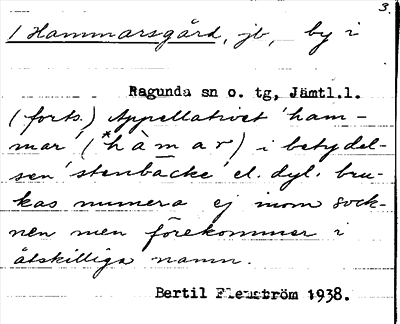 3.
1 Hammarsgård, jb, by i
Ragunda sn o. tg, Jämtl.l.
(forts.) Appellativet 'ham-
mar' (*hàmar) i betydel-
sen 'stenbacke' el. dyl. bru-
kas numera ej inom sock-
nen men förekommer i
åtskilliga namn.
Bertil Flemström 1938.